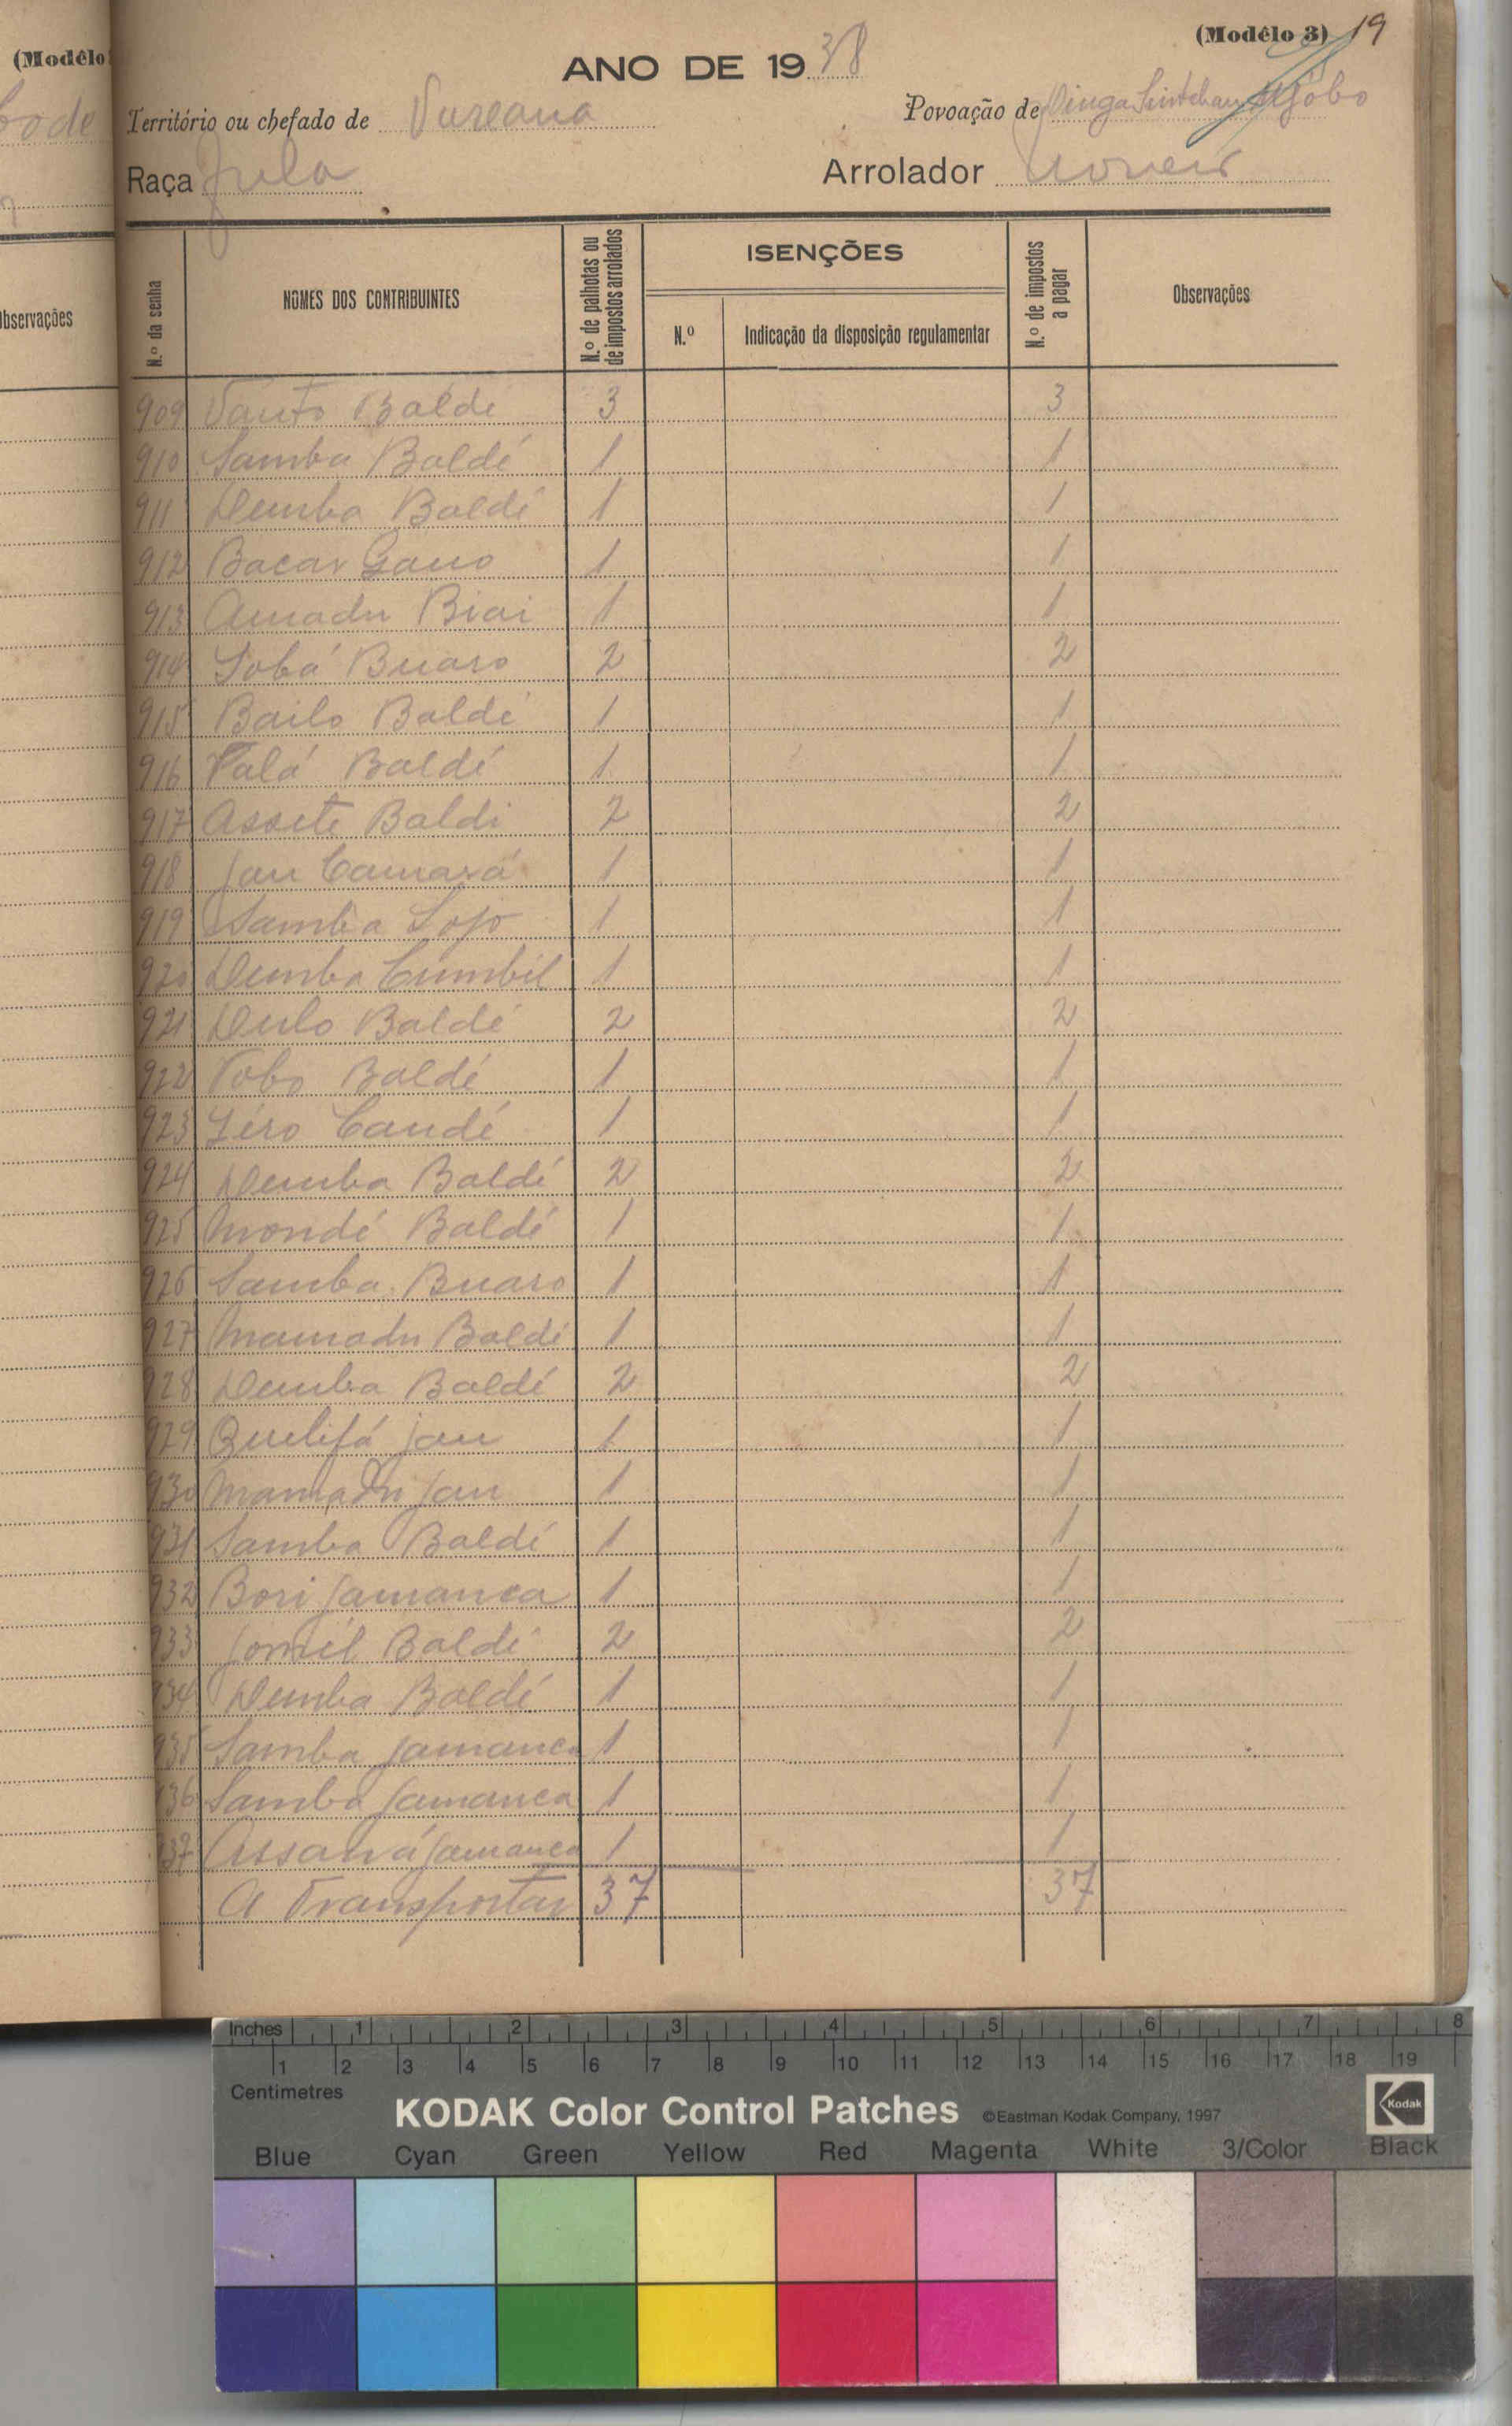 (Modêlo
bservações
(Modêlo 3) 19
ANO DE 1938
Território ou chefado de
Povoação de
Raça Fula
Arrolador
N.º da senha
NOMES DOS CONTRIBUINTES
N.º de palhotas ou de impostos arrolados
ISENÇÕES
N.º
Indicação da disposição regulamentar
N.º de impostos a pagar
Observações
909 Baldé 3 3
910 Samba Baldé 1 1
911 Demba Baldé 1 1
912 Bacar Gano 1 1
913 Amadu Biai 1 1
914 Sobá Buaro 2 2
915 Bailo Baldé 1 1
916 Baldé 1 1
917 Assete Baldi 2 2
918 Jau Camará 1 1
919 Samba 1 1
920 Demba Cumbil 1 1
921 Dulo Baldé 2 2
922 Baldé 1 1
923 Candé 1 1
924 Demba Baldé 2 2
925 Mondé Baldé 1 1
926 Samba Buaro 1 1
927 Mamadu Baldé 1 1
928 Demba Baldé 2 2
929 Quelifá Jau 1 1
930 Mamadu Jau 1 1
931 Samba Baldé 1 1
932 Bori Jamanca 1 1
933 Baldé 2 2
934 Demba Baldé 1 1
935 Samba Jamanca 1 1
936 Samba Jamanca 1 1
937 Jamanca 1 1
A Transportar 37 37
Inches 1 2 3 4 5 6 7 8
1 2 3 4 5 6 7 8 9 10 11 12 13 14 15 16 17 18 19
Centimetres
KODAK Color Control Patches ©Eastman Kodak Company, 1997 Kodak
Blue Cyan Green Yellow Red Magenta White 3/Color Black